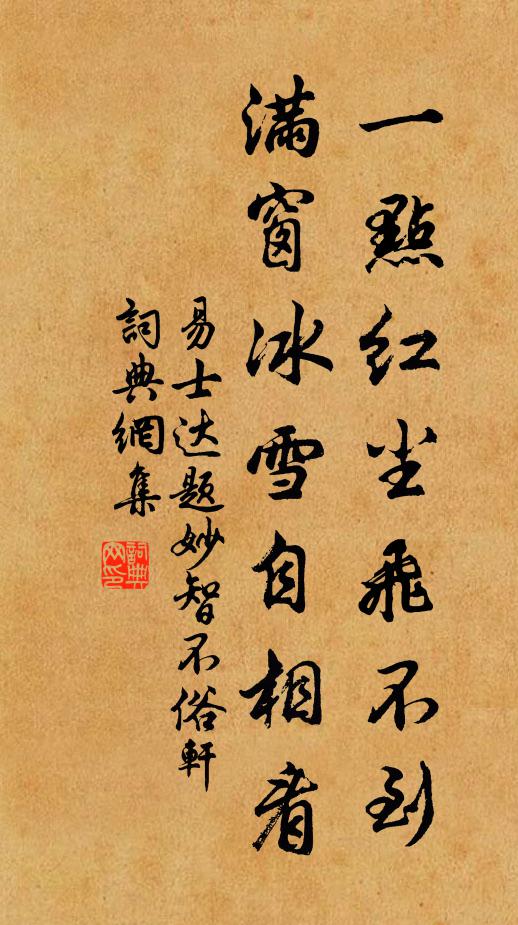 一點红尘飛不到
滿窗冰雪自相看
易士达题妙智不俗軒
詞典網集
詞典网印